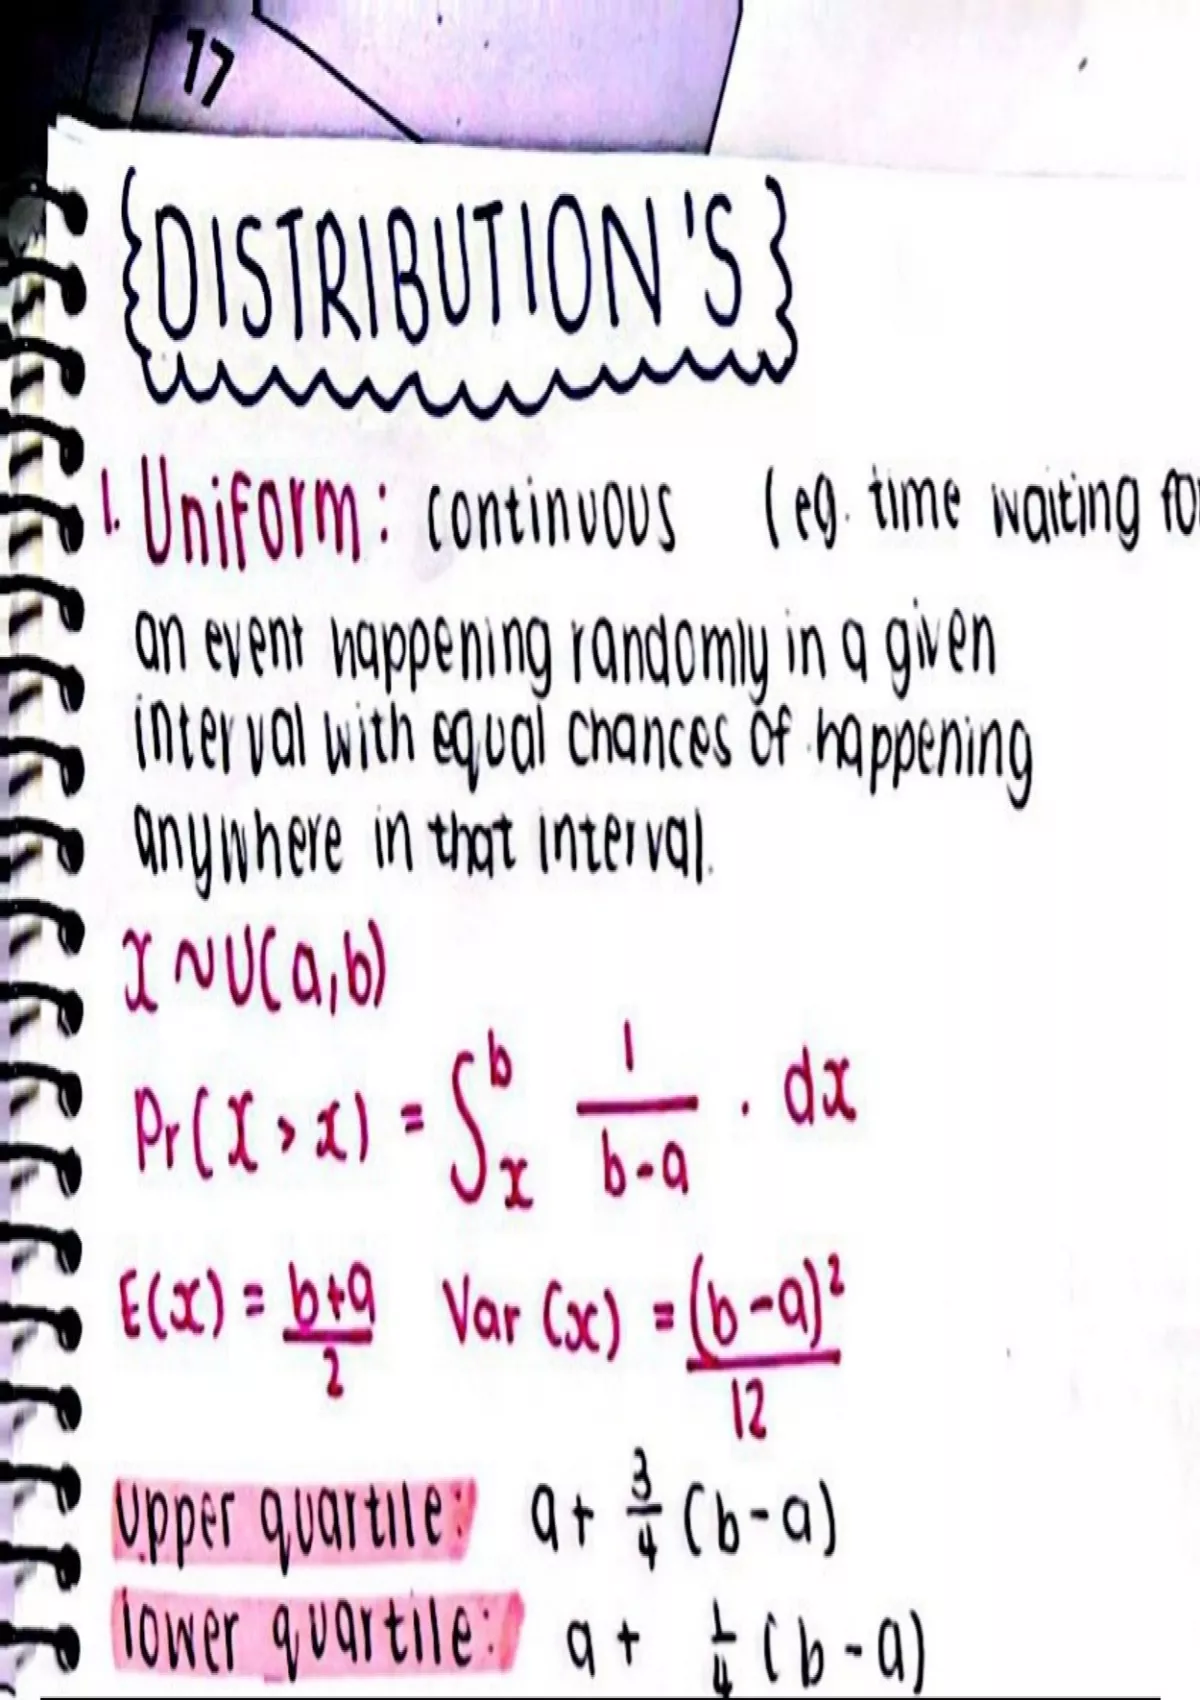 17
{DISTRIBUTION'S}
1. Uniform: continuous (eg. time waiting for
an event happening randomly in a given
interval with equal chances of happening
anywhere in that interval.
X ~ U(a,b)
Pr(X > x) = ∫ₓᵇ 1/(b-a) . dx
E(x) = (b+a)/2 Var (x) = (b-a)²/12
upper quartile: a + 3/4 (b-a)
lower quartile: a + 1/4 (b-a)